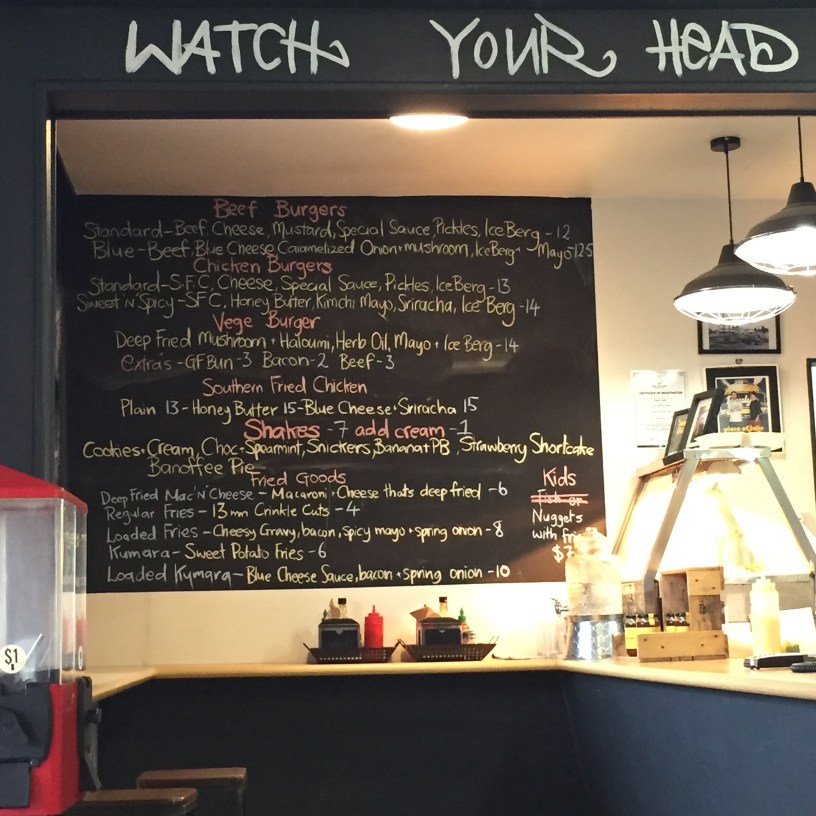 WATCH YOUR HEAD
Beef Burgers
Standard-Beef, Cheese, Mustard, Special Sauce, Pickles, Ice Berg - 12
Blue-Beef, Blue Cheese, Caramelized Onion + mushroom, Ice Berg + Mayo - 12.5
Chicken Burgers
Standard-S.F.C, Cheese, Special Sauce, Pickles, Ice Berg - 13
Sweet 'N' Spicy - SFC, Honey Butter, Kimchi Mayo, Sriracha, Ice Berg - 14
Vege Burger
Deep Fried Mushroom + Haloumi, Herb Oil, Mayo + Ice Berg - 14
extra's - GF Bun - 3 Bacon - 2 Beef - 3
Southern Fried Chicken
Plain 13 - Honey Butter 15 - Blue Cheese + Sriracha 15
Shakes - 7 add cream - 1
Cookies + Cream, Choc + Spearmint, Snickers, Banana + PB, Strawberry Shortcake
Banoffee Pie
Fried Goods
Deep Fried Mac 'N' Cheese - Macaroni + Cheese thats deep fried - 6
Regular Fries - 13mm Crinkle Cuts - 4
Loaded Fries - Cheesy Gravy, bacon, spicy mayo + spring onion - 8
Kumara - Sweet Potato Fries - 6
Loaded Kumara - Blue Cheese Sauce, bacon + spring onion - 10
Kids
Fish or
Nuggets
with
$7
$1